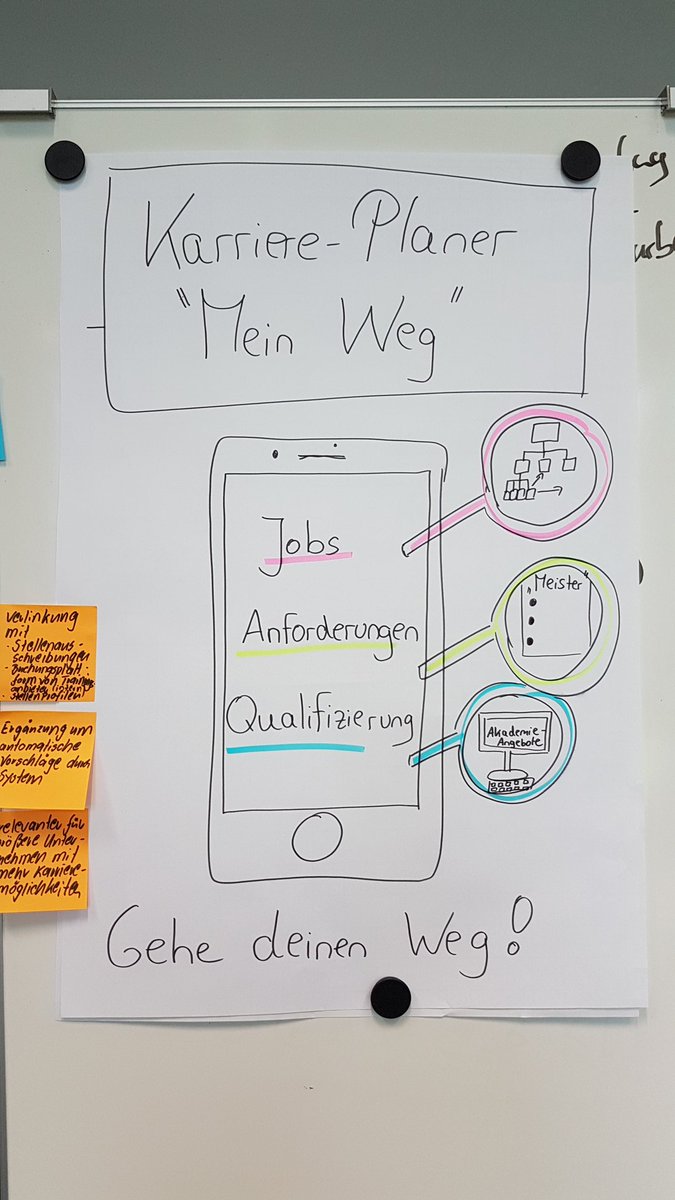 Karriere-Planer
"Mein Weg"
Jobs
Anforderungen
Qualifizierung
Meister
Akademie-
Angebote
Gehe deinen Weg!
Verlinkung
mit
· Stellenaus-
schreibungen
· Buchungsplatt-
form von Trainings
anbieter
· Stellenprofilen
Ergänzung um
automatische
Vorschläge durch
System
relevanter für
größere Unter-
nehmen mit
mehr Karriere-
möglichkeiten